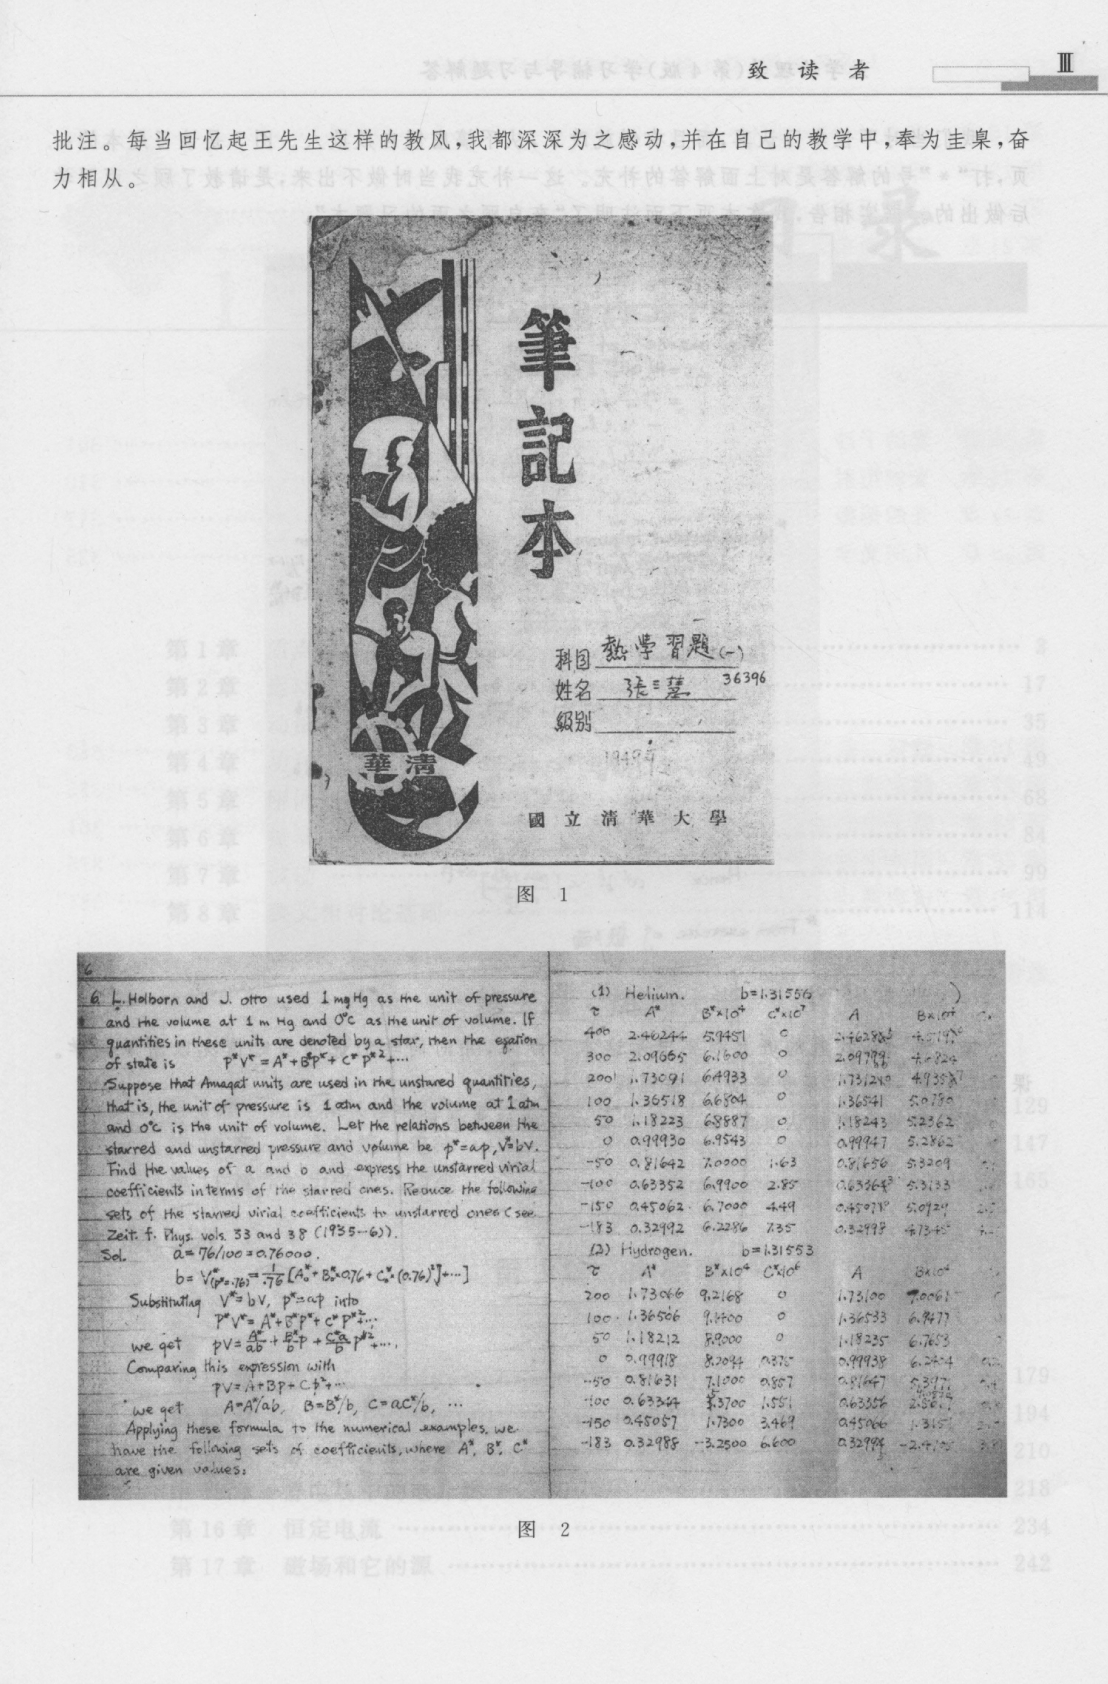 致读者
Ⅲ
批注。每当回忆起王先生这样的教风,我都深深为之感动,并在自己的教学中,奉为圭臬,奋
力相从。
筆記本
科目 熱學習題(一)
姓名 張三慧 36396
級別
1949
華清
國立清華大學
图 1
6
6 L. Holborn and J. Otto used 1 m Hg as the unit of pressure
and the volume at 1 m Hg and 0°C as the unit of volume. If
quantities in these units are denoted by a star, then the eqation
of state is p*V* = A*+B*p*+C*p*²+...
Suppose that Amagat units are used in the unstared quantities,
that is, the unit of pressure is 1 atm and the volume at 1 atm
and 0°C is the unit of volume. Let the relations between the
starred and unstarred pressure and volume be p*=ap, V*=bV.
Find the values of a and b and express the unstarred virial
coefficients in terms of the starred ones. Reduce the following
sets of the starred virial coefficients to unstarred ones (see
Zeit. f. Phys. vols. 33 and 38 (1935-6)).
Sol. a = 76/100 = 0.76000.
Substituting V*=bV, p*=ap into
p*V* = A*+B*p*+C*p*²+...,
we get
Comparing this expression with
pV=A+Bp+Cp²+...
we get A=A*/ab, B=B*/b, C=aC*/b, ...
Applying these formula to the numerical examples, we
have the following sets of coefficients, where A*, B*, C*
are given values:
(1) Helium. b=1.31556
τ A* B*×10⁴ C*×10⁷ A B×10⁴
400 2.46244 5.9451 0
300 2.09665 6.1600 0
200 1.73091 6.4933 0
100 1.36518 6.6804 0 1.36541 5.0780
50 1.18223 6.8887 0 1.18243 5.2362
0 0.99930 6.9543 0 0.99947 5.2862
-50 0.81642 7.0000 1.63 0.81656 5.3209
-100 0.63352 6.9900 2.85 5.3133
-150 0.45062 6.7000 4.49 5.0929
-183 0.32992 6.2286 7.35 4.7345
(2) Hydrogen. b=1.31553
τ A* B*×10⁴ C*×10⁶ A B×10⁴
200 1.73066 9.2168 0 1.73100 7.0061
100 1.36506 9.1400 0 1.36533 6.9477
50 1.18212 8.9000 0 1.18235 6.7653
0 0.99918 8.2094 0.375 0.99938 6.2404
-50 0.81631 7.1000 0.857 0.81647
-100 0.63344 1.551 0.63356
-150 0.45057 1.7300 3.469 0.45066 1.3151
-183 0.32988 -3.2500 6.600 0.32994
图 2